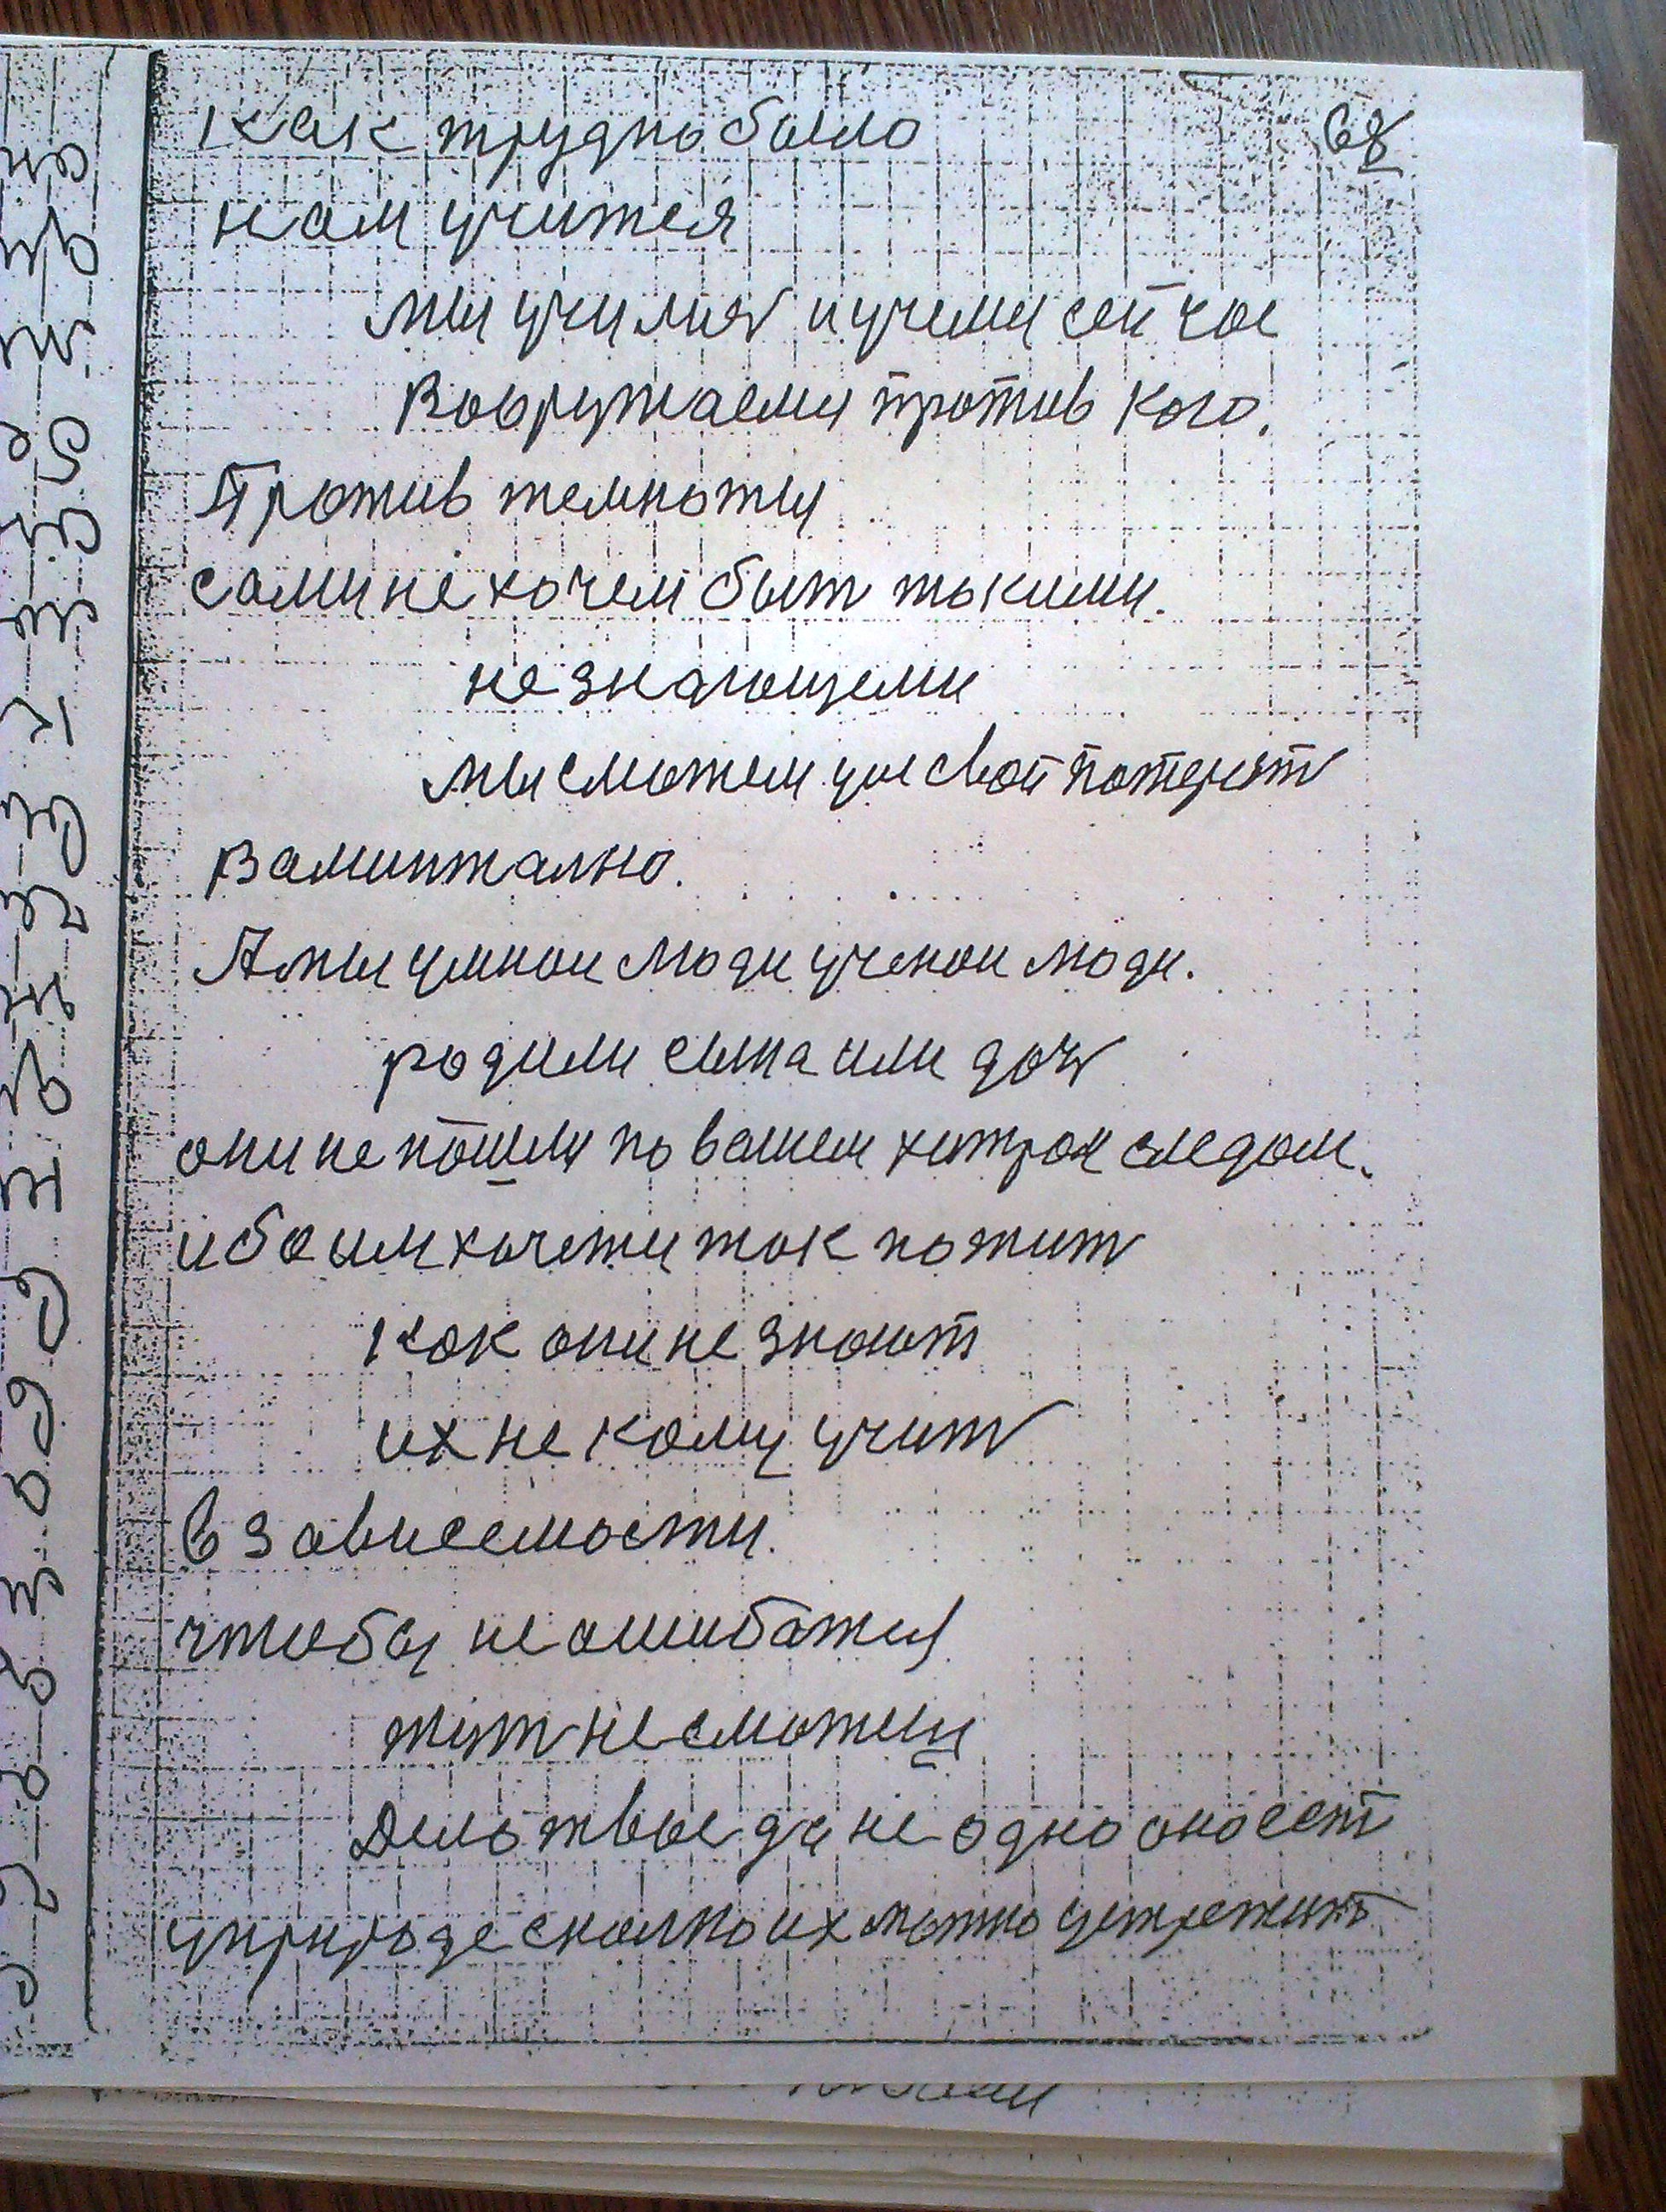 68
как трудно было
нам учится
мы училис и учемы сей час
Вооружаемы против кого.
Против темноты
сами не хочем быт токими.
не знающеми
мы сможем ум свой потерят
Ваминтално.
А мы умнои люди ученои люди.
родили сына или доч
они не пошлы по вашем хитрои следом.
ибо им хочеты ток пожит
как они не знают
их не кому учит
в зависемости.
чтобы не ошибатся
тут не сможеш
Дело твое да не одно оно ест
у природе сколко их можно